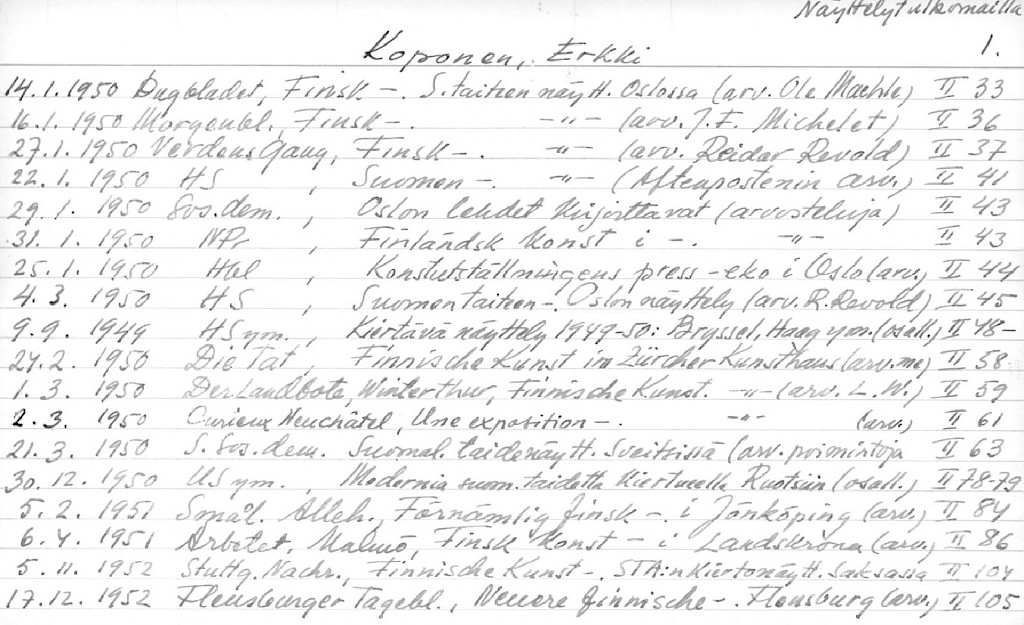 Näyttelyt ulkomailla
1.
Koponen, Erkki
14.1.1950 Dagbladet, Finsk -. S.taiteen näytt. Oslossa (arv. Ole Maehle) II 33
16.1.1950 Morgenbl., Finsk -. -"- (arv. J.F. Michelet) II 36
27.1.1950 Verdens Gang, Finsk -. -"- (arv. Reidar Revold) II 37
22.1.1950 HS , Suomen -. -"- (Aftenpostenin arv.) II 41
29.1.1950 Sos.dem. , Oslon lehdet kirjoittavat (arvosteluja) II 43
31.1.1950 NPr , Finländsk konst i -. -"- II 43
25.1.1950 Hbl , Konstutställningens press-eko i Oslo (arv.) II 44
4.3.1950 HS , Suomen taiteen -. Oslon näyttely (arv. R. Revold) II 45
9.9.1949 HS ym. , Kiertävä näyttely 1949-50: Bryssel, Haag ym. (osall.) II 48-
24.2.1950 Die Tat , Finnische Kunst im Zürcher Kunsthaus (arv. me) II 58
1.3.1950 Der Landbote, Winterthur, Finnische Kunst. -"- (arv. L.W.) II 59
2.3.1950 Curieux Neuchâtel, Une exposition -. -"- (arv.) II 61
21.3.1950 S.Sos.dem. Suomal. taidenäytt. Sveitsissä (arv. poimintoja II 63
30.12.1950 US ym. , Modernia suom. taidetta kiertueella Ruotsiin (osall.) II 78-79
5.2.1951 Smål. Alleh., Förnämlig finsk -. i Jönköping (arv.) II 84
6.4.1951 Arbetet, Malmö, Finsk konst - i Landskrona (arv.) II 86
5.11.1952 Stuttg. Nachr., Finnische Kunst -. STA:n kiertonäytt. Saksassa II 104
17.12.1952 Flensburger Tagebl., Neuere finnische -. Flensburg (arv.) II 105